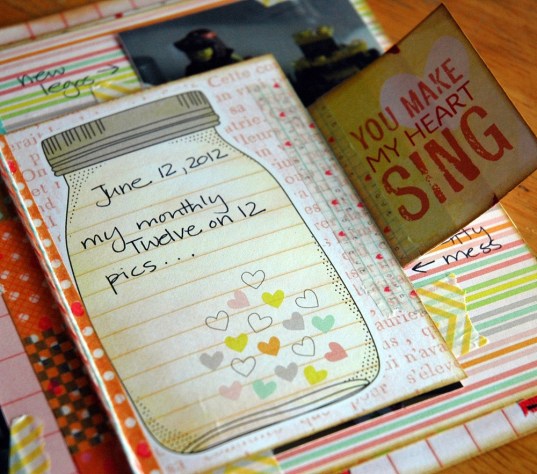 new
legos →
June 12, 2012
my monthly
Twelve on 12
pics...
YOU MAKE
MY HEART
SING
← mess
Cette